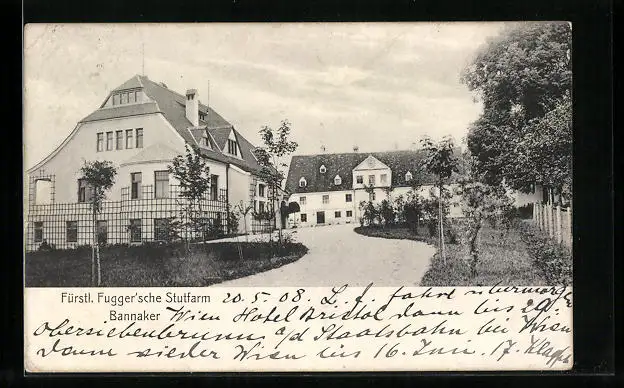 Fürstl. Fugger'sche Stutfarm 20.5.08. L. f. fahrd übermorg
Bannaker Wien Hotel Bristol dann bis 29.
Obersiebenbrunn a/d Staatsbahn bei Wien
dann wieder Wien bis 16. Juni. 17.